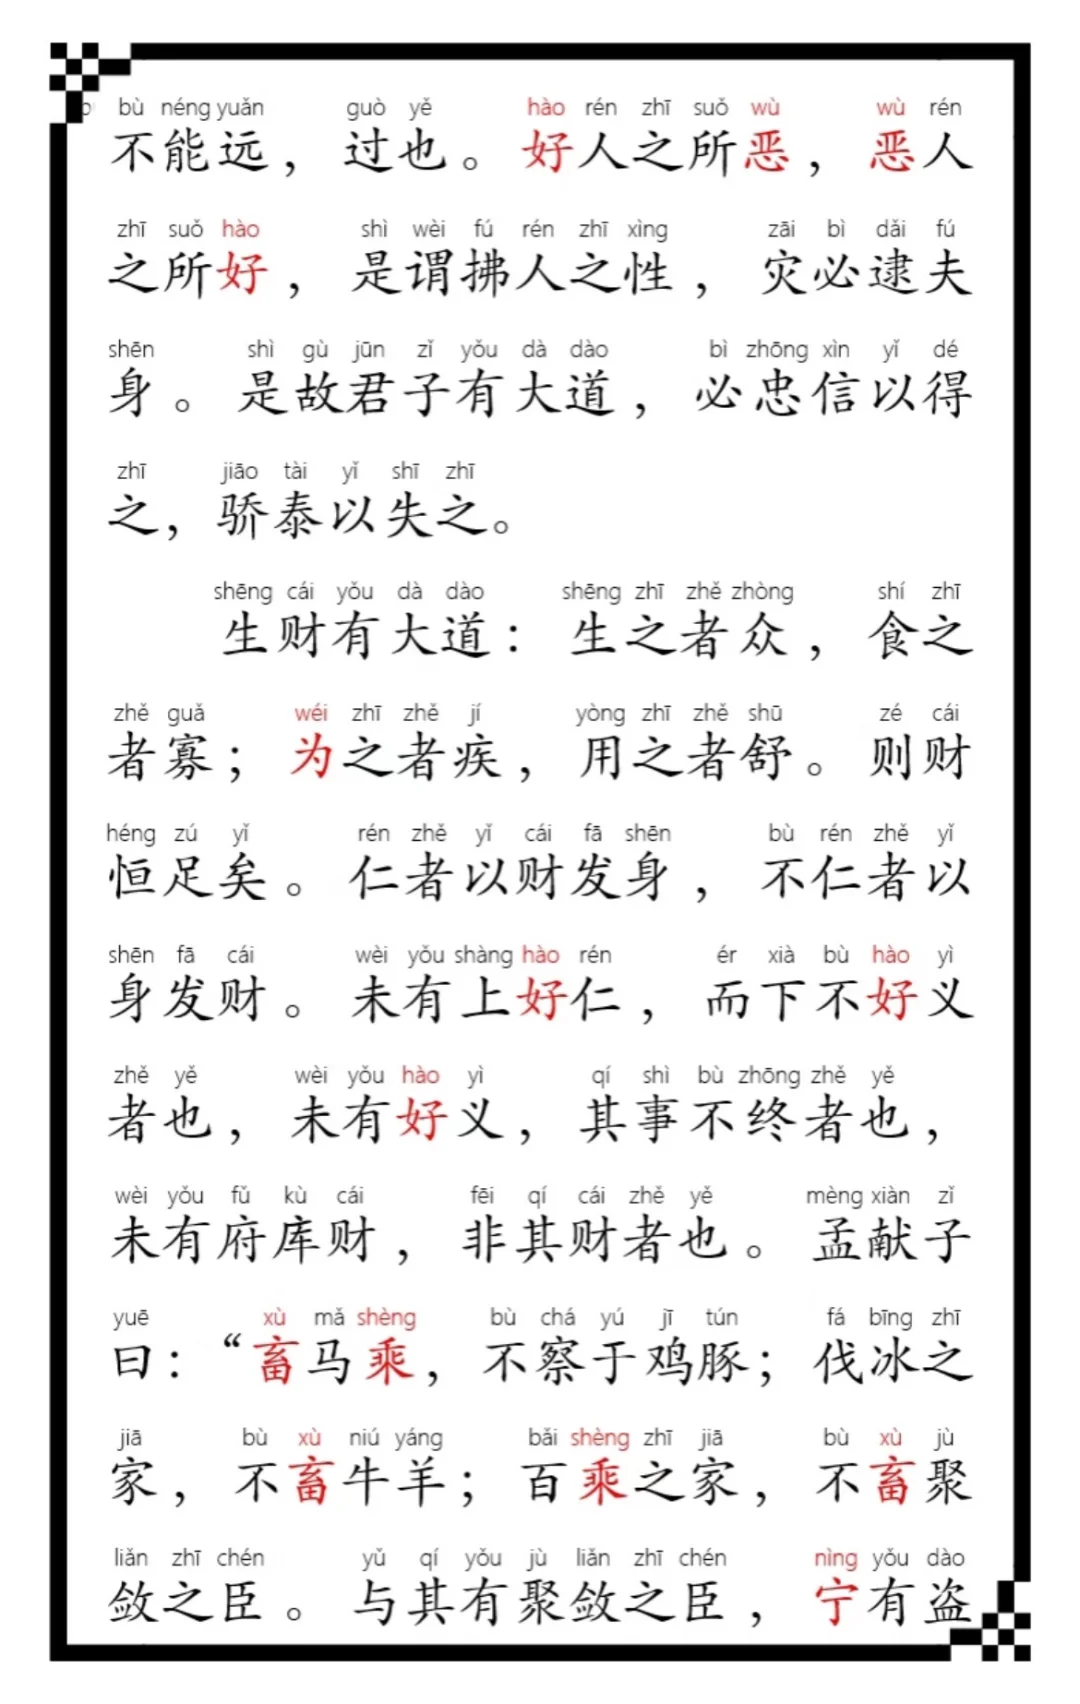 bù néng yuǎn guò yě hào rén zhī suǒ wù wù rén
不能远，过也。好人之所恶，恶人
zhī suǒ hào shì wèi fú rén zhī xìng zāi bì dǎi fú
之所好，是谓拂人之性，灾必逮夫
shēn shì gù jūn zǐ yǒu dà dào bì zhōng xìn yǐ dé
身。是故君子有大道，必忠信以得
zhī jiāo tài yǐ shī zhī
之，骄泰以失之。
shēng cái yǒu dà dào shēng zhī zhě zhòng shí zhī
生财有大道：生之者众，食之
zhě guǎ wéi zhī zhě jí yòng zhī zhě shū zé cái
者寡；为之者疾，用之者舒。则财
héng zú yǐ rén zhě yǐ cái fā shēn bù rén zhě yǐ
恒足矣。仁者以财发身，不仁者以
shēn fā cái wèi yǒu shàng hào rén ér xià bù hào yì
身发财。未有上好仁，而下不好义
zhě yě wèi yǒu hào yì qí shì bù zhōng zhě yě
者也，未有好义，其事不终者也，
wèi yǒu fǔ kù cái fēi qí cái zhě yě mèng xiàn zǐ
未有府库财，非其财者也。孟献子
yuē xù mǎ shèng bù chá yú jī tún fá bīng zhī
曰：“畜马乘，不察于鸡豚；伐冰之
jiā bù xù niú yáng bǎi shèng zhī jiā bù xù jù
家，不畜牛羊；百乘之家，不畜聚
liǎn zhī chén yǔ qí yǒu jù liǎn zhī chén nìng yǒu dào
敛之臣。与其有聚敛之臣，宁有盗